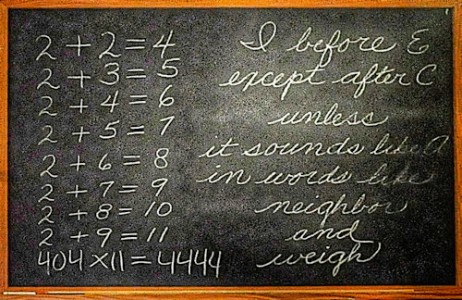 2 + 2 = 4
2 + 3 = 5
2 + 4 = 6
2 + 5 = 7
2 + 6 = 8
2 + 7 = 9
2 + 8 = 10
2 + 9 = 11
404 x 11 = 4444
I before E
except after C
unless
it sounds like A
in words like
neighbor
and
weigh